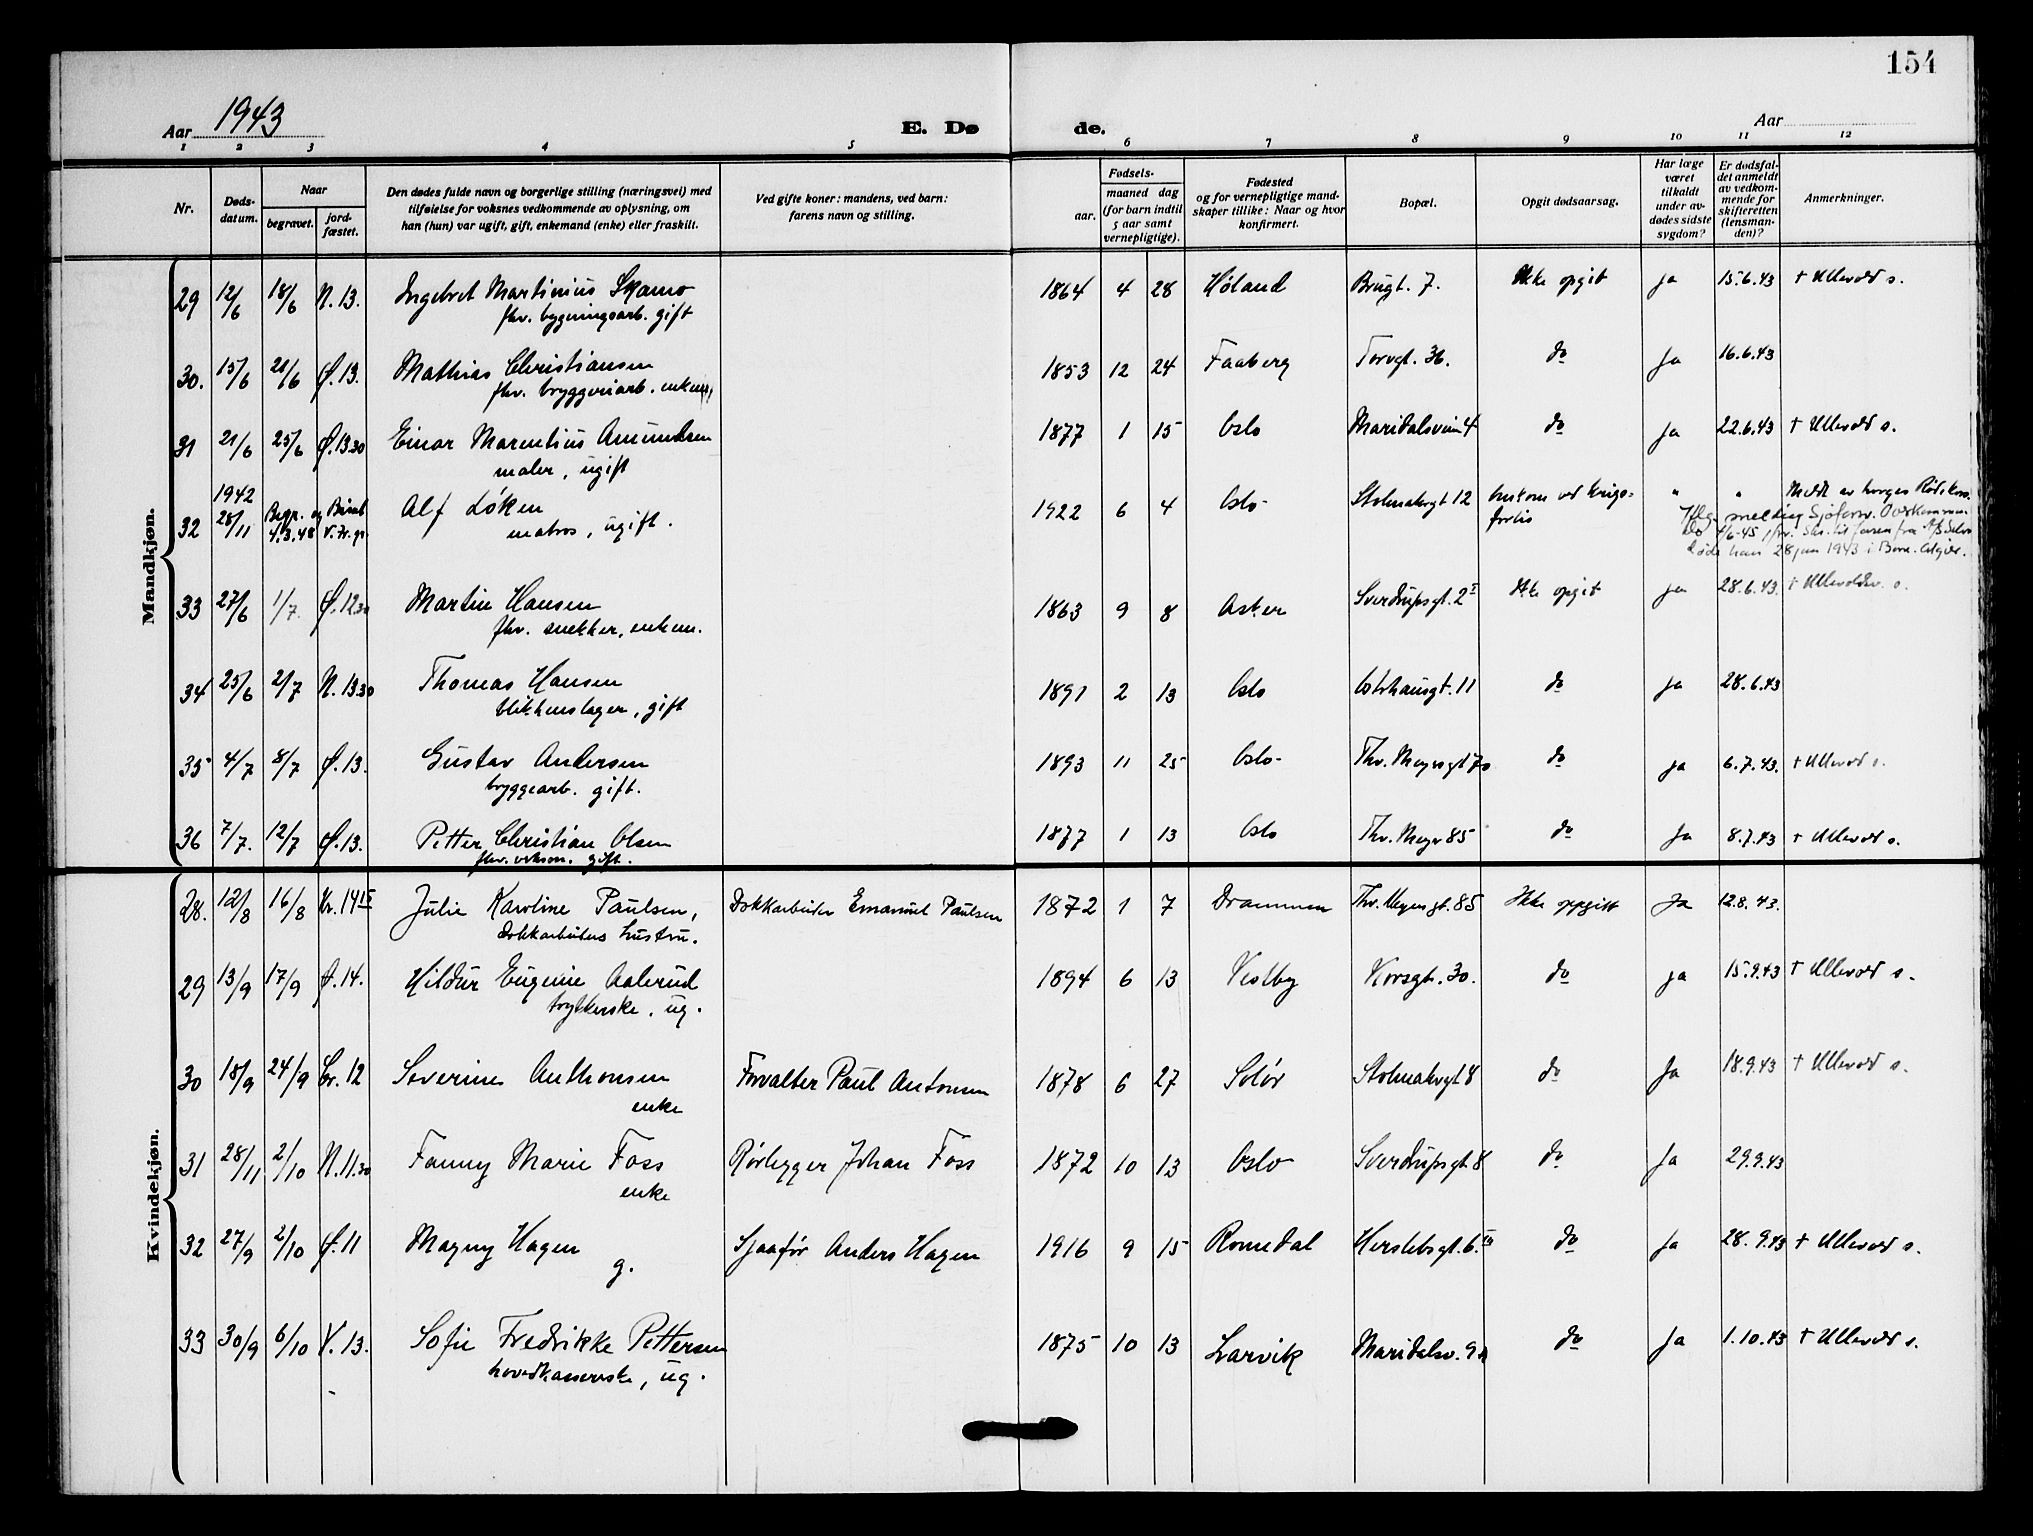 154
Aar 1943
E. Dø de.
Aar
1 2 3 4 5 6 7 8 9 10 11 12
Nr.
Døds-
datum.
Naar
begravet.
jord-
fæstet.
Den dødes fulde navn og borgerlige stilling (næringsvei) med
tilføielse for voksnes vedkommende av oplysning, om
han (hun) var ugift, gift, enkemand (enke) eller fraskilt.
Ved gifte koner: mandens, ved barn:
farens navn og stilling.
Fødsels-
aar.
maaned dag
(for barn indtil
5 aar samt
vernepligtige).
Fødested
og for vernepligtige mand-
skaper tillike: Naar og hvor
konfirmert.
Bopæl.
Opgit dødsaarsag.
Har læge
været
tilkaldt
under av-
dødes sidste
sygdom?
Er dødsfal-
det anmeldt
av vedkom-
mende for
skifteretten
(lensman-
den)?
Anmerkninger.
Mandkjøn.
29 12/6 18/6 N. 13. Ingebret Martinius Skamo 1864 4 28 Høland Brugt. 7. Ikke opgit ja 15.6.43 + Ullevold s.
fhv. bygningsarb. gift
30. 15/6 21/6 Ø. 13. Mathias Christiansen 1853 12 24 Faaberg Torvgt. 36. do ja 16.6.43
fhv. bryggeriarb. enkem.
31 21/6 25/6 Ø. 13.30 Einar Marentius Amundsen 1877 1 15 Oslo Maridalsveien 4 do ja 22.6.43 + Ullevold s.
maler, ugift
32 1942 28/11 Alf Løken 1922 6 4 Oslo Stolmakergt 12 omkom ved krigs- " "
4.3.48 matros, ugift. forlis
33 27/6 1/7. Ø. 12.30 Martin Hansen 1863 9 8 Asker Sverdrupsgt. 2 I Ikke opgit ja 28.6.43. + Ullevold s.
fhv. snekker, enkem.
34 25/6 2/7 N. 13.30 Thomas Hansen 1891 2 13 Oslo 11 do ja 28.6.43
blikkenslager, gift
35 4/7 8/7 Ø. 13. Gustav Andersen 1893 11 25 Oslo Thv. Meyersgt 70 do ja 6.7.43. + Ullevold s.
bryggearb. gift.
36 7/7. 12/7 Ø. 13. Petter Christian Olsen 1877 1 13 Oslo Thv. Meyer 85 do ja 8.7.43 + Ullevold s.
gift.
Kvindekjøn.
28. 12/8 16/8 Kr. 14 15 Julie Karoline Paulsen, Dokkarbeider Emanuel Paulsen 1872 1 7 Drammen Thv. Meyersgt. 85 Ikke oppgitt Ja 12.8.43.
dokkarbeiders hustru.
29 13/9 17/9 Ø. 14. Hildur Eugenie Aalerud 1894 6 13 Vestby Korsgt. 30. do ja 15.9.43 + Ullevold s.
trykkerske, ug.
30 18/9 24/9 Cr. 12 Severine Anthonsen Forvalter Paul Antonsen 1878 6 27 Solør Stolmakergt 8 do Ja 18.9.43 + Ullevold s.
enke
31 28/11 2/10 N. 11.30 Fanny Marie Foss Rørlegger Johan Foss 1872 10 13 Oslo Sverdrupsgt. 8 do Ja 29.9.43
enke
32 27/9 2/10 Ø. 11 Magny Hagen Sjaafør Anders Hagen 1916 9 15 Romedal Herslebsgt. 6. do Ja 28.9.43 + Ullevold s.
g.
33 30/9 6/10 V. 13. Sofie Fredrikke Pettersen 1875 10 13 Larvik Maridalsv. 9 do Ja 1.10.43 + Ullevold s.
hovedkassererske, ug.